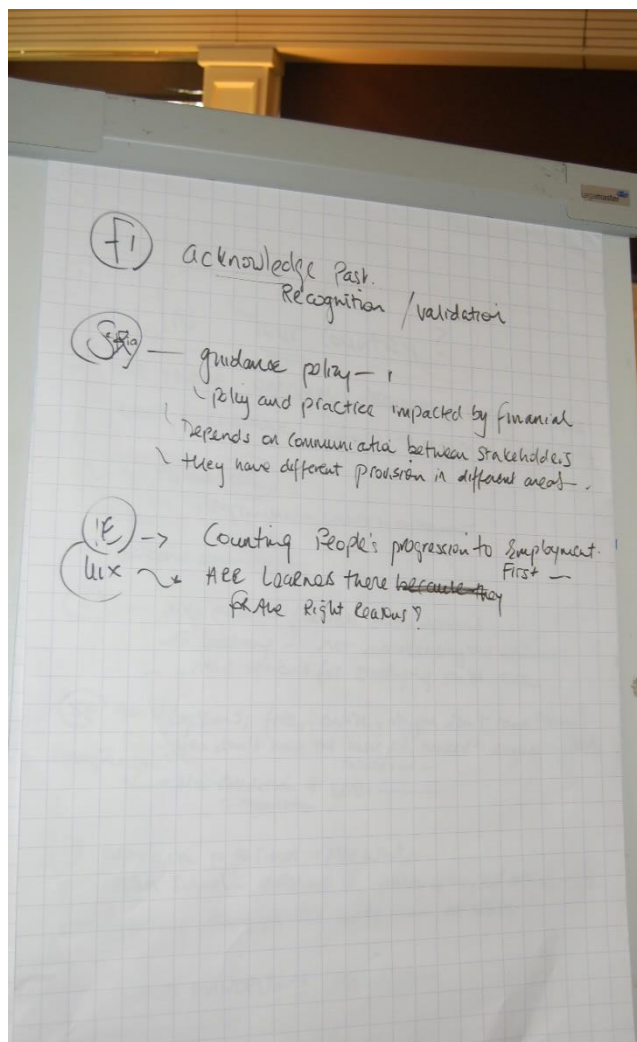 FI acknowledge Past.
Recognition / validation
guidance policy –
policy and practice impacted by financial
Depends on communication between stakeholders
they have different provision in different areas.
IE → Counting People's progression to Employment.
First –
Lux Are Learners there because they
for the Right Reasons?